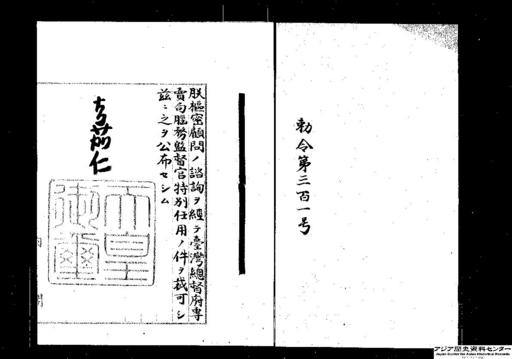 勅令第三百一号
朕樞密顧問ノ諮詢ヲ經テ臺灣總督府專
賣局腦務監督官特別任用ノ件ヲ裁可シ
茲ニ之ヲ公布セシム
嘉仁
天皇
御璽
内閣
アジア歴史資料センター
Japan Center for Asian Historical Records